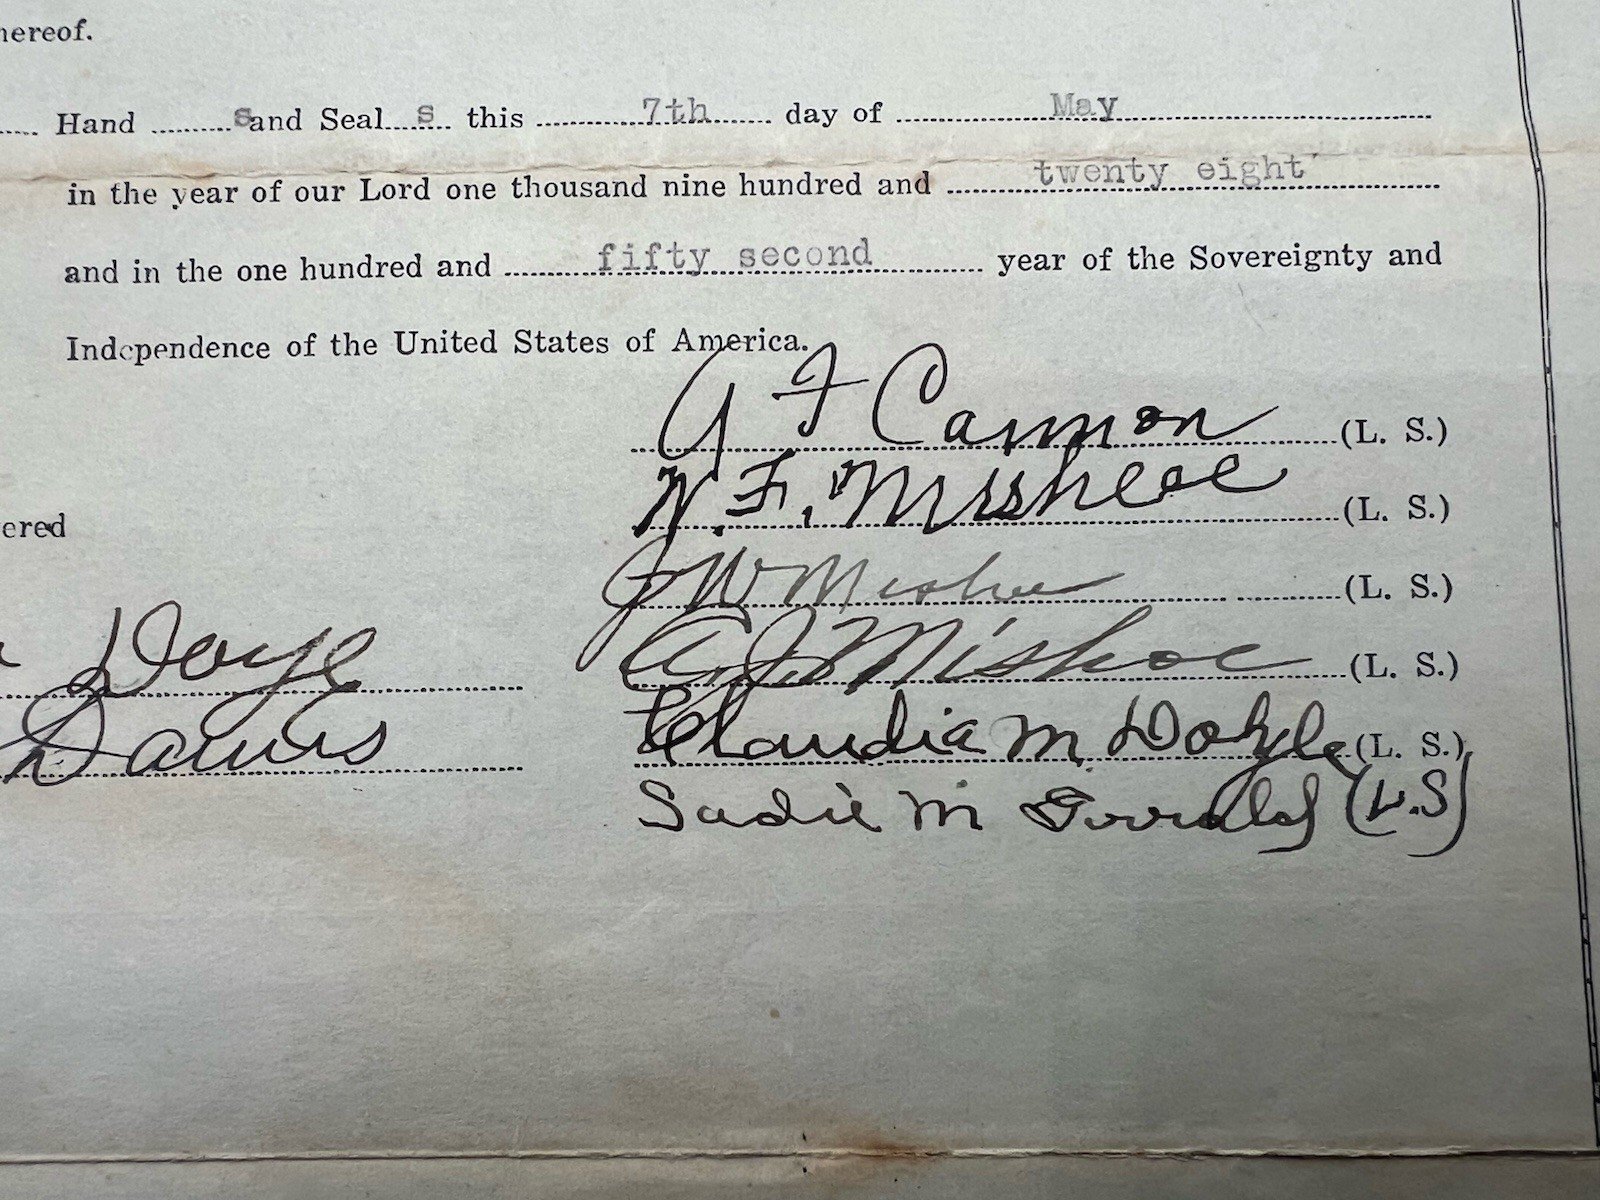 hereof.
Hand s and Seal s this 7th day of May
in the year of our Lord one thousand nine hundred and twenty eight
and in the one hundred and fifty second year of the Sovereignty and
Independence of the United States of America.
G F Cannon (L. S.)
W. F. Mishoe (L. S.)
ered
J W Mishoe (L. S.)
Doyle
A. J. Mishoe (L. S.)
Davis
Claudia M Doyle (L. S.)
Sadie M (L.S)